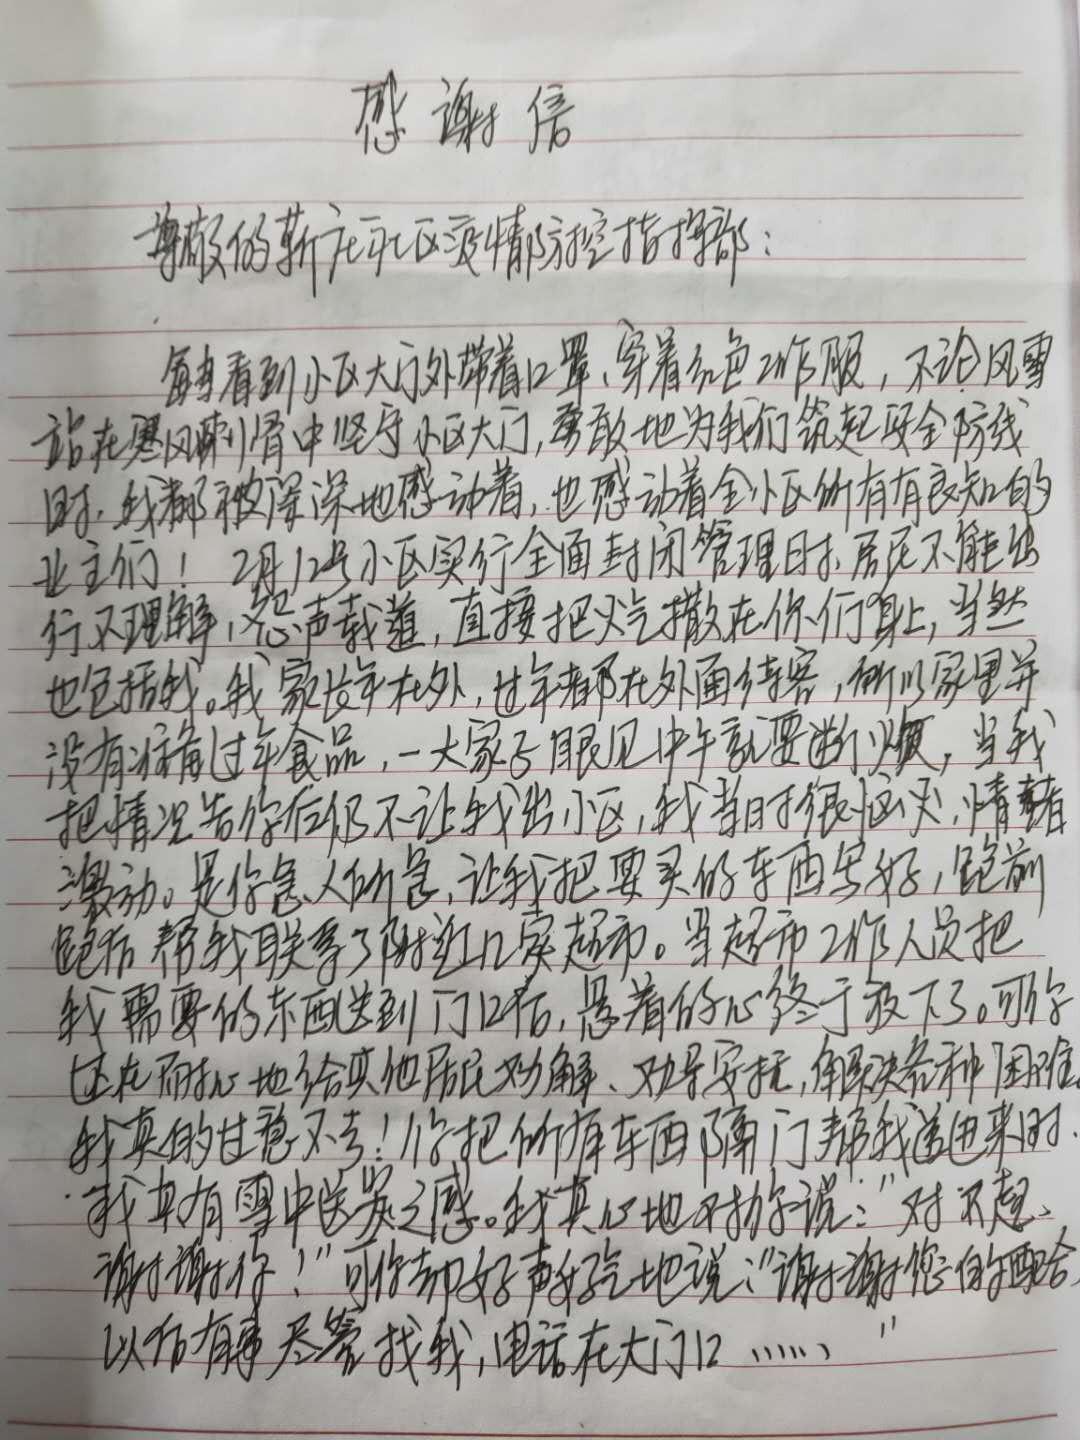 感谢信
尊敬的靳庄社区疫情防控指挥部：
每当看到小区大门外带着口罩、穿着红色工作服，不论风雪
站在寒风刺骨中坚守小区大门，勇敢地为我们筑起安全防线
时，我都被深深地感动着，也感动着全小区所有有良知的
业主们！2月12号小区实行全面封闭管理时，居民不能出
行不理解，怨声载道，直接把火气撒在你们身上，当然
也包括我。我家长年在外，过年都在外面待客，所以家里并
没有准备过年食品，一大家子眼见中午就要断火烟，当我
把情况告你后仍不让我出小区，我当时很恼火，情绪
激动。是你急人所急，让我把要买的东西写好，跑前
跑后帮我联系了附近几家超市。当超市工作人员把
我需要的东西送到门口后，悬着的心终于放下了。可你
还在耐心地给其他居民劝解、劝导安抚，解决各种困难。
我真的过意不去！你把所有东西隔门帮我递进来时，
我真有雪中送炭之感。我真心地对你说：“对不起、
谢谢你！”可你却好声好气地说：“谢谢您的配合，
以后有事尽管找我，电话在大门口……”